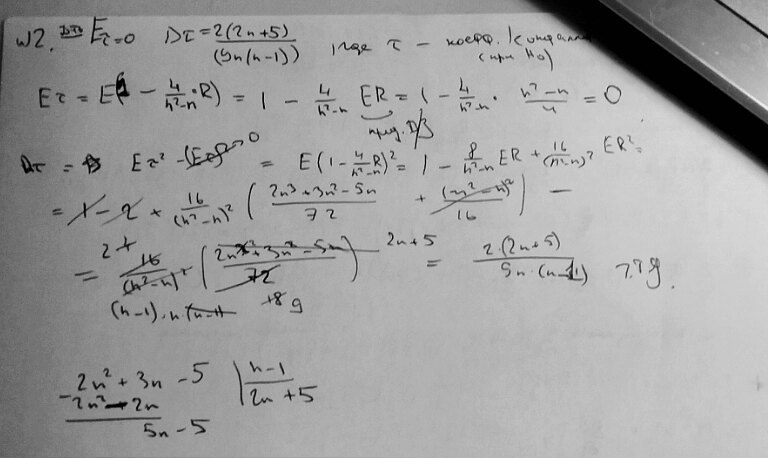 №2. Док-ть Eτ=0 Dτ = 2(2n+5)/(9n(n-1)), где τ - коэфф. Кендалла (при H0)
Eτ = E(1 - 4/(n²-n)·R) = 1 - 4/(n²-n) ER = 1 - 4/(n²-n) · (n²-n)/4 = 0
пред. Д/З
Dτ = Eτ² - (Eτ)² → 0 = E(1 - 4/(n²-n) R)² = 1 - 8/(n²-n) ER + 16/(n²-n)² ER² =
= 1 - 2 + 16/(n²-n)² ( (2n³+3n²-5n)/72 + (n²-n)²/16 ) =
= 16/(n²-n)² ( (2n³+3n²-5n)/72 ) 2n+5 = 2(2n+5)/(9n·(n-1)) ч.т.д.
(n-1)·n (n-1) 18 9
2n² + 3n - 5 | n-1
- 2n² - 2n | 2n + 5
5n - 5